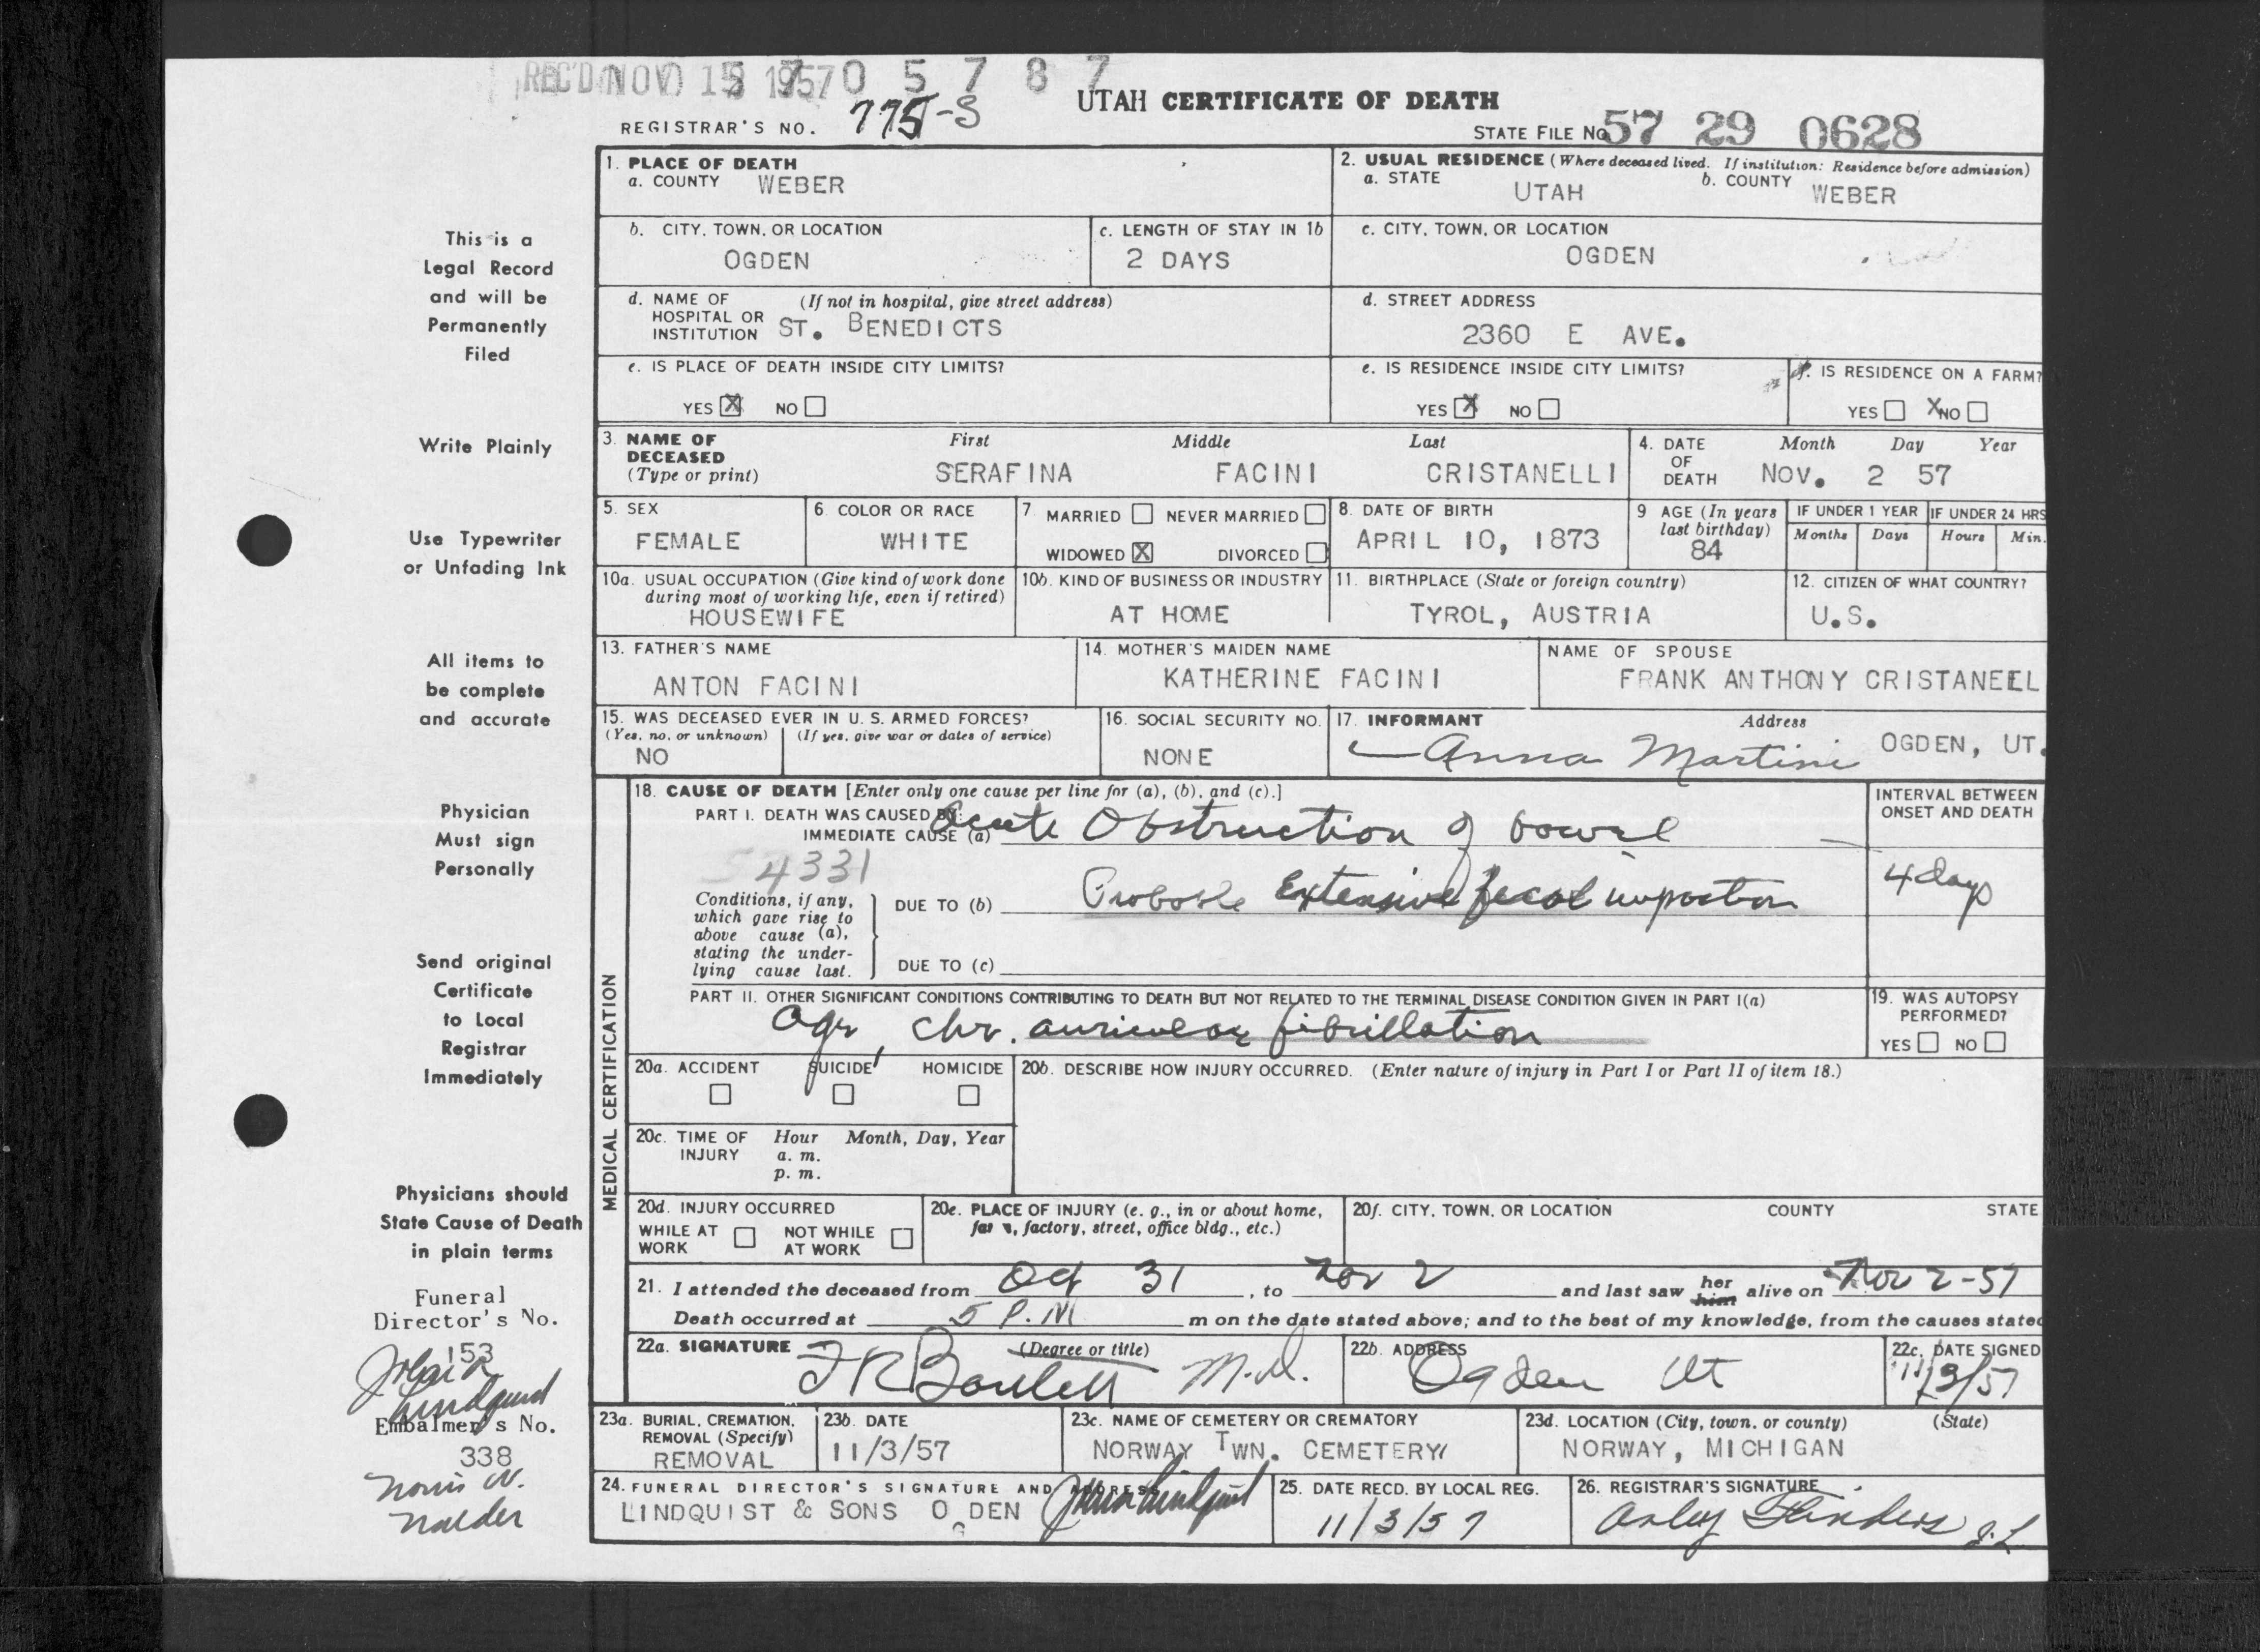 REC'D NOV 1957 0 5 7 8 7
UTAH CERTIFICATE OF DEATH
REGISTRAR'S NO. 775-S
STATE FILE NO 57 29 0628
This is a
Legal Record
and will be
Permanently
Filed
Write Plainly
Use Typewriter
or Unfading Ink
All items to
be complete
and accurate
Physician
Must sign
Personally
Send original
Certificate
to Local
Registrar
Immediately
Physicians should
State Cause of Death
in plain terms
Funeral
Director's No.
153
Lindquist
Embalmer's No.
338
Norris W.
Nalder
1. PLACE OF DEATH
a. COUNTY WEBER
2. USUAL RESIDENCE (Where deceased lived. If institution: Residence before admission)
a. STATE UTAH b. COUNTY WEBER
b. CITY, TOWN, OR LOCATION
OGDEN
c. LENGTH OF STAY IN 1b
2 DAYS
c. CITY, TOWN, OR LOCATION
OGDEN
d. NAME OF HOSPITAL OR INSTITUTION (If not in hospital, give street address)
ST. BENEDICTS
d. STREET ADDRESS
2360 E AVE.
e. IS PLACE OF DEATH INSIDE CITY LIMITS?
YES X NO
e. IS RESIDENCE INSIDE CITY LIMITS?
YES X NO
f. IS RESIDENCE ON A FARM?
YES X NO
3. NAME OF DECEASED (Type or print)
First Middle Last
SERAFINA FACINI CRISTANELLI
4. DATE OF DEATH Month Day Year
NOV. 2 57
5. SEX
FEMALE
6. COLOR OR RACE
WHITE
7. MARRIED NEVER MARRIED
WIDOWED X DIVORCED
8. DATE OF BIRTH
APRIL 10, 1873
9 AGE (In years last birthday)
84
IF UNDER 1 YEAR
Months Days
IF UNDER 24 HRS
Hours Min.
10a. USUAL OCCUPATION (Give kind of work done during most of working life, even if retired)
HOUSEWIFE
10b. KIND OF BUSINESS OR INDUSTRY
AT HOME
11. BIRTHPLACE (State or foreign country)
TYROL, AUSTRIA
12. CITIZEN OF WHAT COUNTRY?
U.S.
13. FATHER'S NAME
ANTON FACINI
14. MOTHER'S MAIDEN NAME
KATHERINE FACINI
NAME OF SPOUSE
FRANK ANTHONY CRISTANEEL
15. WAS DECEASED EVER IN U. S. ARMED FORCES?
(Yes, no, or unknown) (If yes, give war or dates of service)
NO
16. SOCIAL SECURITY NO.
NONE
17. INFORMANT Address
Anna Martini OGDEN, UT.
MEDICAL CERTIFICATION
18. CAUSE OF DEATH [Enter only one cause per line for (a), (b), and (c).]
PART I. DEATH WAS CAUSED BY:
IMMEDIATE CAUSE (a) Acute Obstruction of bowel
4331
Conditions, if any, which gave rise to above cause (a), stating the underlying cause last.
DUE TO (b) Probable Extensive fecal impaction
DUE TO (c)
INTERVAL BETWEEN ONSET AND DEATH
4 days
PART II. OTHER SIGNIFICANT CONDITIONS CONTRIBUTING TO DEATH BUT NOT RELATED TO THE TERMINAL DISEASE CONDITION GIVEN IN PART I(a)
Age, chr. auricular fibrillation
19. WAS AUTOPSY PERFORMED?
YES NO
20a. ACCIDENT SUICIDE HOMICIDE
20b. DESCRIBE HOW INJURY OCCURRED. (Enter nature of injury in Part I or Part II of item 18.)
20c. TIME OF INJURY Hour Month, Day, Year
a. m.
p. m.
20d. INJURY OCCURRED
WHILE AT WORK NOT WHILE AT WORK
20e. PLACE OF INJURY (e. g., in or about home, farm, factory, street, office bldg., etc.)
20f. CITY, TOWN, OR LOCATION COUNTY STATE
21. I attended the deceased from Oct 31, to Nov 2 and last saw her him alive on Nov 2-57
Death occurred at 5 P.M m on the date stated above; and to the best of my knowledge, from the causes stated
22a. SIGNATURE (Degree or title)
F R Bartlett M.D.
22b. ADDRESS
Ogden Ut
22c. DATE SIGNED
11/3/57
23a. BURIAL, CREMATION, REMOVAL (Specify)
REMOVAL
23b. DATE
11/3/57
23c. NAME OF CEMETERY OR CREMATORY
NORWAY TWN. CEMETERY
23d. LOCATION (City, town, or county) (State)
NORWAY, MICHIGAN
24. FUNERAL DIRECTOR'S SIGNATURE AND ADDRESS
LINDQUIST & SONS OGDEN
25. DATE RECD. BY LOCAL REG.
11/3/57
26. REGISTRAR'S SIGNATURE
Flinders